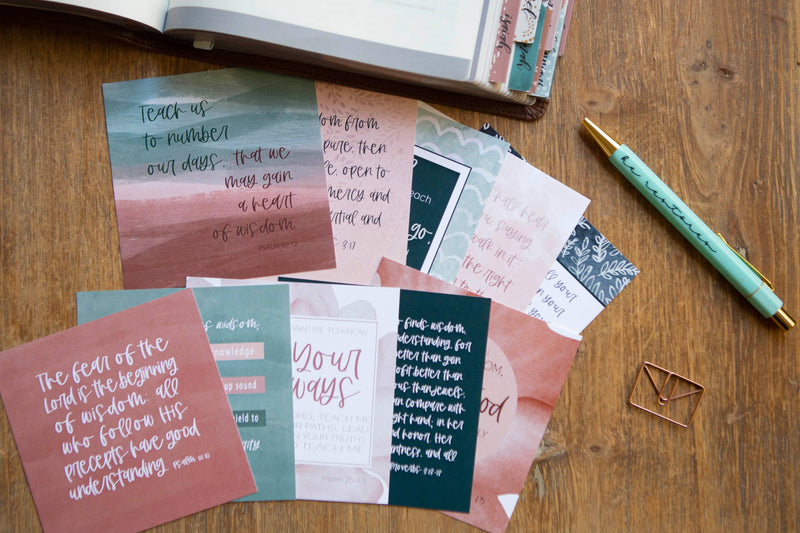 Teach us
to number
our days, that we
may gain
a heart
of wisdom
PSALM 90:12
from
pure, then
open to
mercy and
and
3:17
each
go,
hall hear
saying,
walk in it,
the right
to the
your
you
Be rooted
The fear of the
Lord is the beginning
of wisdom; all
who follow His
precepts have good
understanding. Psalm 111:10
widsom,
knowledge
up sound
to
ME TO KNOW
Your
ways
LORD, TEACH ME
YOUR PATHS. LEAD
IN YOUR TRUTHS
TEACH ME
Psalm 25:4-5
finds wisdom,
understanding, for
better than gain
profit better than
than jewels,
can compare with
right hand; in her
and honor. Her
and all
Proverbs 3:13-17